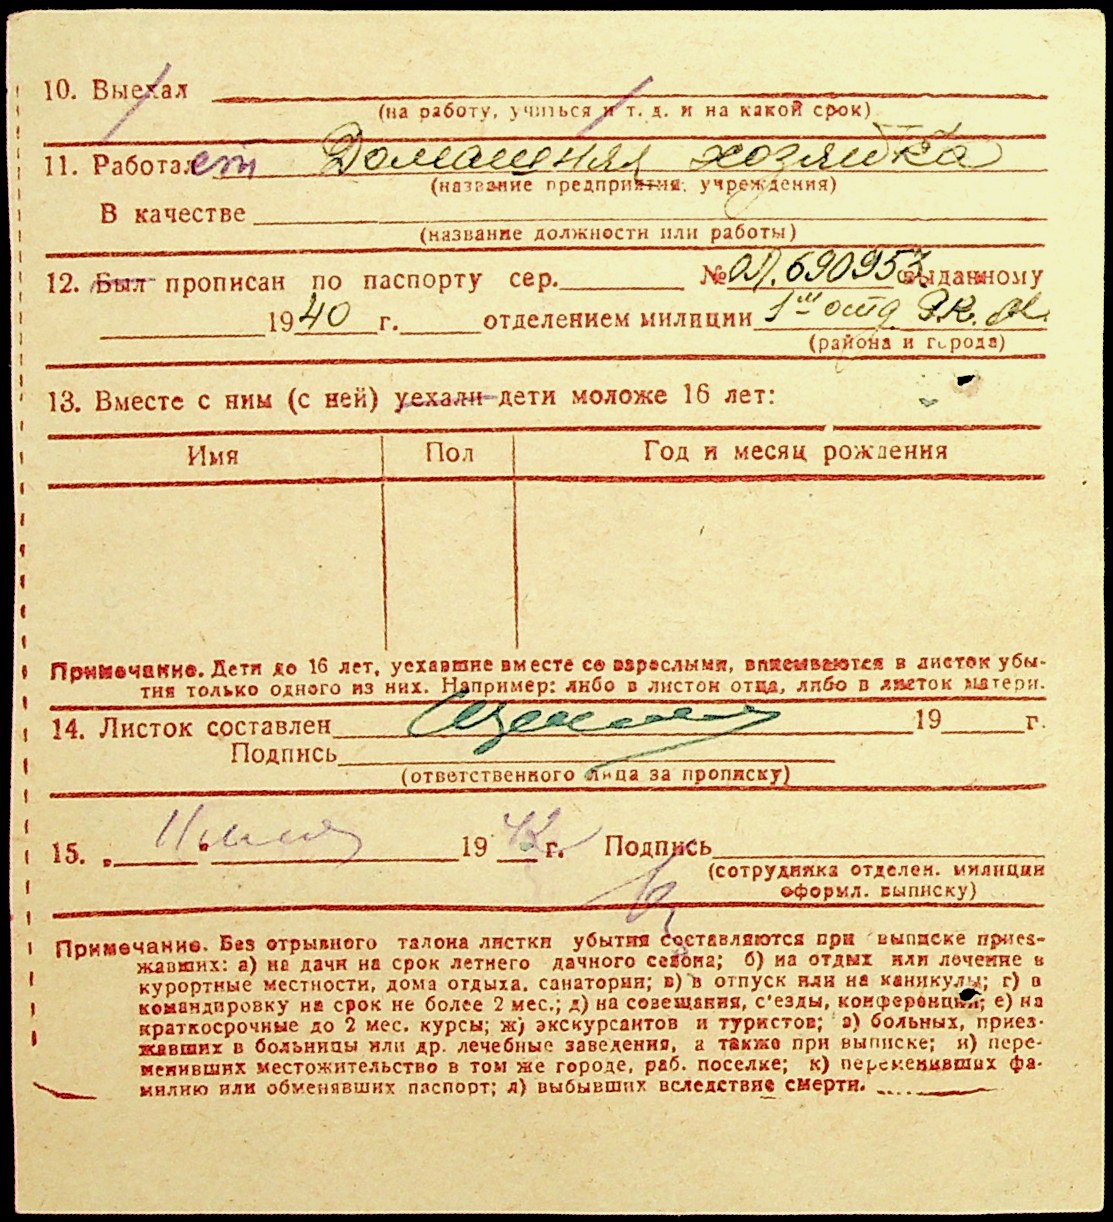 10. Выехал
(на работу, учиться и т. д. и на какой срок)
11. Работает Домашняя хозяйка
(название предприятия, учреждения)
В качестве
(название должности или работы)
12. Был прописан по паспорту сер. № ОЛ. 690953 выданному
1940 г. отделением милиции 1м отд.
(района и города)
13. Вместе с ним (с ней) уехали дети моложе 16 лет:
Имя Пол Год и месяц рождения
Примечание. Дети до 16 лет, уехавшие вместе со взрослыми, вписываются в листок убы-
тия только одного из них. Например: либо в листок отца, либо в листок матери.
14. Листок составлен 19 г.
Подпись
(ответственного лица за прописку)
15. „ “ 1942 г. Подпись
(сотрудника отделен. милиции
оформл. выписку)
Примечание. Без отрывного талона листки убытия составляются при выписке приез-
жавших: а) на дачи на срок летнего дачного сезона; б) на отдых или лечение в
курортные местности, дома отдыха, санатории; в) в отпуск или на каникулы; г) в
командировку на срок не более 2 мес.; д) на совещания, с'езды, конференции; е) на
краткосрочные до 2 мес. курсы; ж) экскурсантов и туристов; з) больных, приез-
жавших в больницы или др. лечебные заведения, а также при выписке; и) пере-
менивших местожительство в том же городе, раб. поселке; к) переменивших фа-
милию или обменявших паспорт; л) выбывших вследствие смерти.